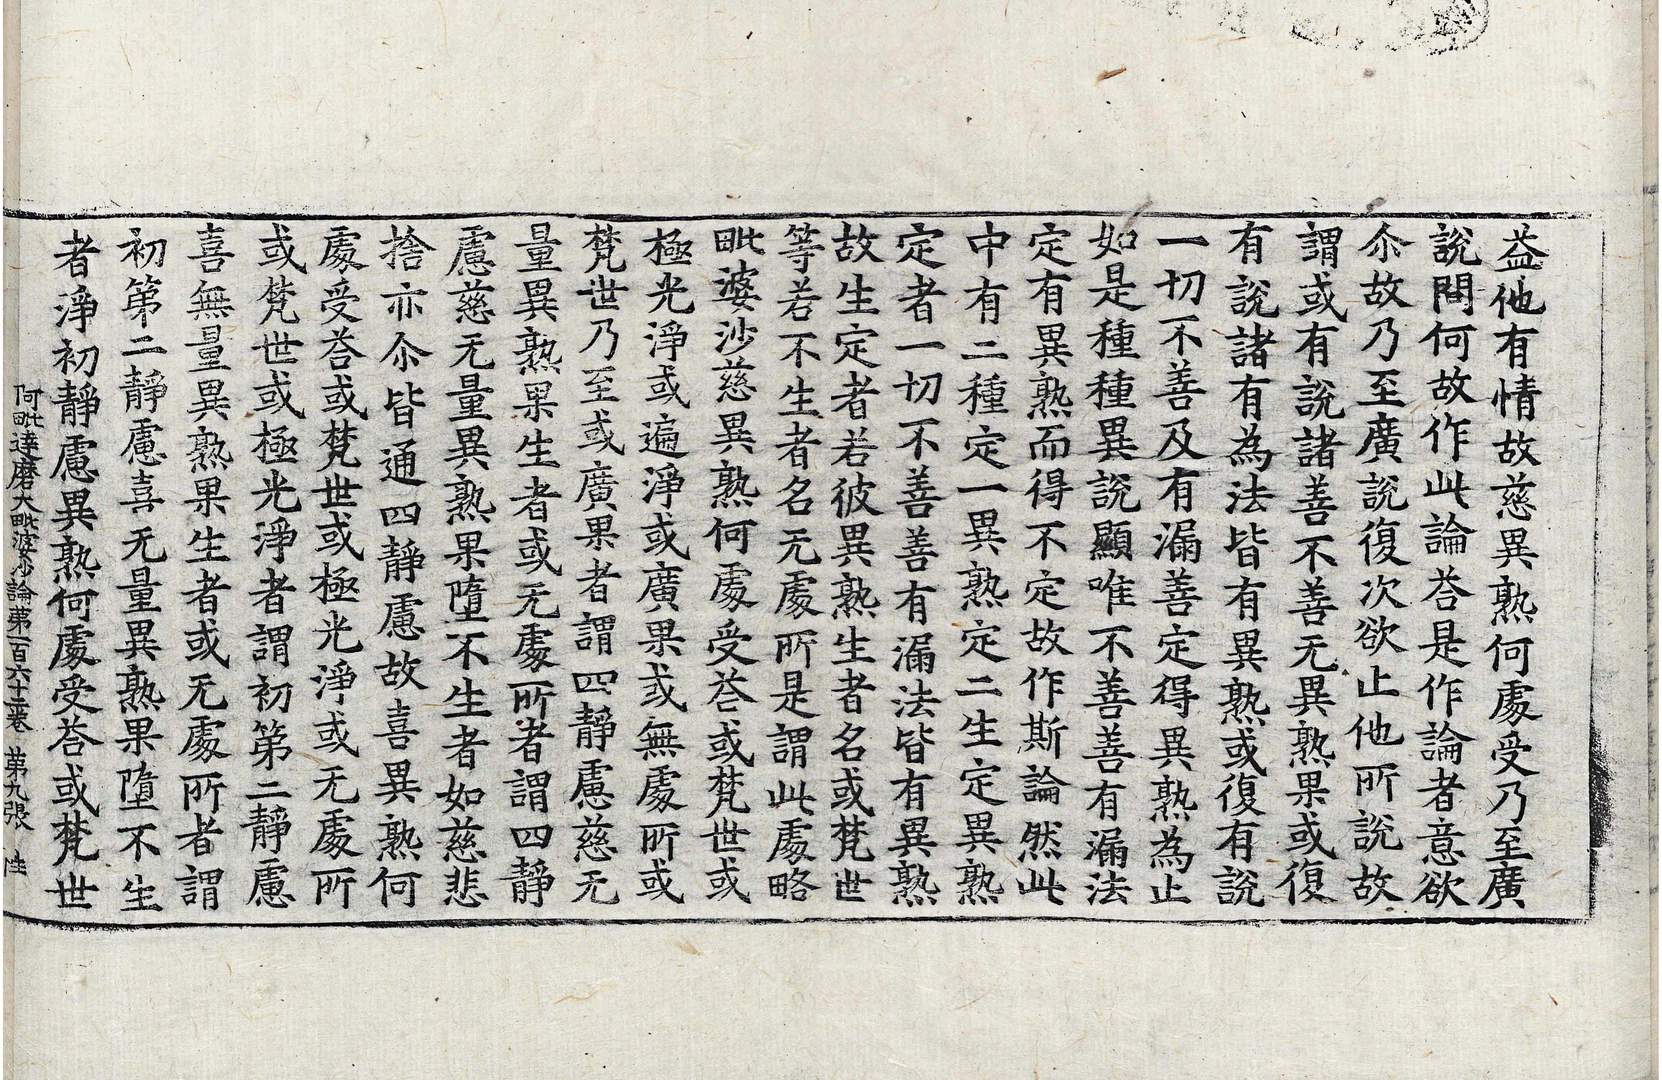 益他有情故慈異熟何處受乃至廣
說問何故作此論荅是作論者意欲
尒故乃至廣說復次欲止他所說故
謂或有說諸善不善无異熟果或復
有說諸有為法皆有異熟或復有說
一切不善及有漏善定得異熟為止
如是種種異說顯唯不善善有漏法
定有異熟而得不定故作斯論然此
中有二種定一異熟定二生定異熟
定者一切不善善有漏法皆有異熟
故生定者若彼異熟生者名或梵世
等若不生者名无處所是謂此處略
毗婆沙慈異熟何處受荅或梵世或
極光淨或遍淨或廣果或無處所或
梵世乃至或廣果者謂四靜慮慈无
量異熟果生者或无處所者謂四靜
慮慈无量異熟果墮不生者如慈悲
捨亦尒皆通四靜慮故喜異熟何
處受荅或梵世或極光淨或无處所
或梵世或極光淨者謂初第二靜慮
喜無量異熟果生者或无處所者謂
初第二靜慮喜无量異熟果墮不生
者淨初靜慮異熟何處受荅或梵世
阿毗達磨大毗婆沙論第一百六十三卷 第九張